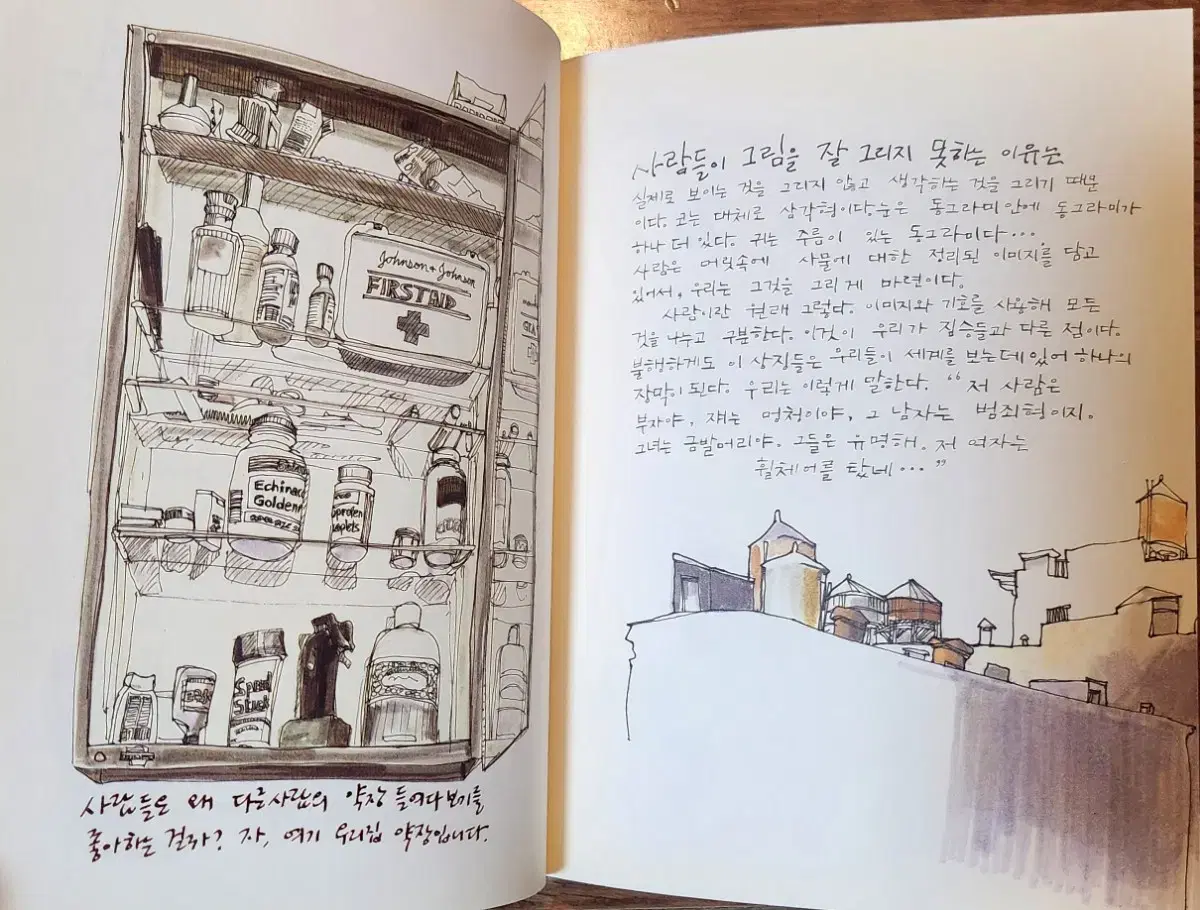 Johnson + Johnson
FIRST AID
Echinac
Goldenr
profen
aplets
Speed
Stick
사람들은 왜 다른사람의 약장 들여다보기를
좋아하는 걸까? 자, 여기 우리집 약장입니다.
사람들이 그림을 잘 그리지 못하는 이유는
실제로 보이는 것을 그리지 않고 생각하는 것을 그리기 때문
이다. 코는 대체로 삼각형이다. 눈은 동그라미 안에 동그라미가
하나 더 있다. 귀는 주름이 있는 동그라미다....
사람은 머릿속에 사물에 대한 정리된 이미지를 담고
있어서, 우리는 그것을 그리게 마련이다.
사람이란 원래 그렇다. 이미지와 기호를 사용해 모든
것을 나누고 구분한다. 이것이 우리가 짐승들과 다른 점이다.
불행하게도 이 상징들은 우리들이 세계를 보는데 있어 하나의
장막이 된다. 우리는 이렇게 말한다. "저 사람은
부자야, 쟤는 멍청이야, 그 남자는 범죄형이지.
그녀는 금발머리야. 그들은 유명해. 저 여자는
휠체어를 탔네..."